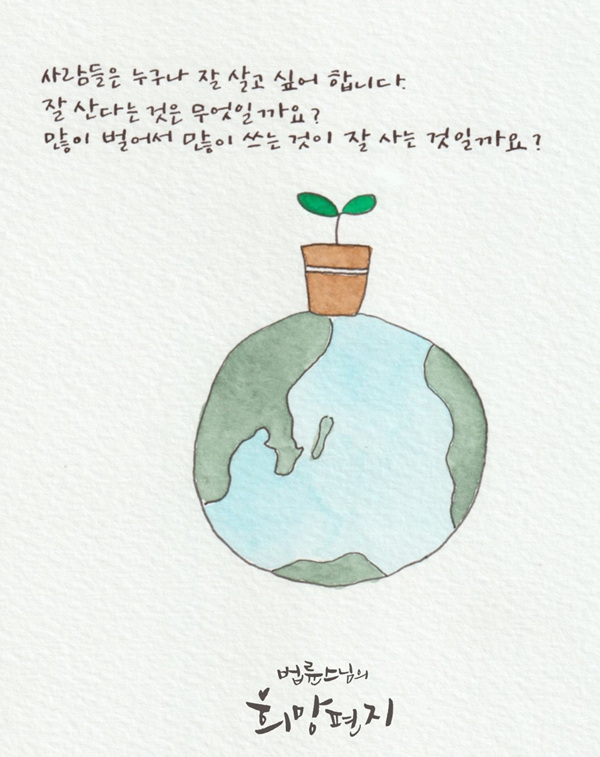 사람들은 누구나 잘 살고 싶어 합니다.
잘 산다는 것은 무엇일까요?
많이 벌어서 많이 쓰는 것이 잘 사는 것일까요?
법륜스님의
희망편지